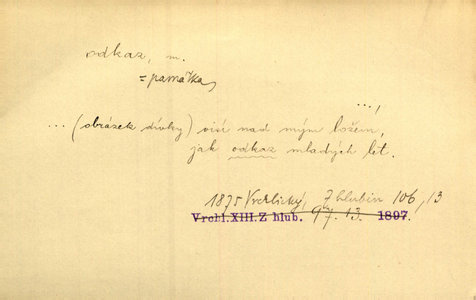 odkaz, m.
= památka,
...,
... (obrázek dívky) visí nad mým ložem,
jak odkaz mladých let.
1875 Vrchlický, Z hlubin 106, 13
Vrchl.XIII.Z hlub. 97. 13. 1897.